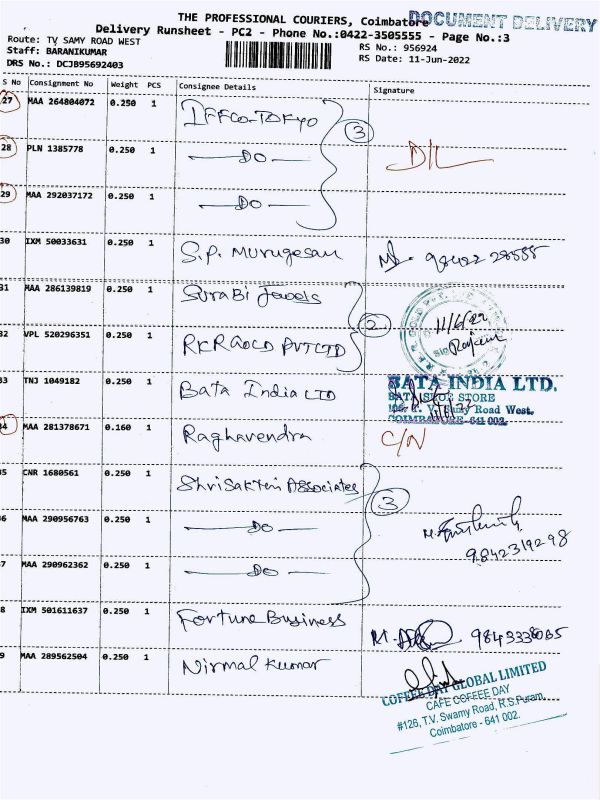 THE PROFESSIONAL COURIERS, Coimbatore DOCUMENT DELIVERY
Delivery Runsheet - PC2 - Phone No.:0422-3505555 - Page No.:3
Route: TV SAMY ROAD WEST
RS No.: 956924
Staff: BARANIKUMAR
RS Date: 11-Jun-2022
DRS No.: DCJB95692403
S No Consignment No Weight PCS Consignee Details Signature
27 MAA 264804072 0.250 1 IFFCO-TOKYO
3
28 PLN 1385778 0.250 1 DO D/L
29 MAA 292037172 0.250 1 DO
30 IXM 50033631 0.250 1 S.P. Murugesan
31 MAA 286139819 0.250 1 Surabi Jewels
2
11/6/22
32 VPL 520296351 0.250 1 RKR GOLD PVT LTD
33 TNJ 1049182 0.250 1 Bata India LTD
BATA INDIA LTD.
BATA SHOE STORE
T. V. Samy Road West,
COIMBATORE-641 002.
34 MAA 281378671 0.160 1 Raghavendra C/N
35 CNR 1680561 0.250 1 Shri Sakthi Associates
3
6 MAA 290956763 0.250 1 DO
9842319298
7 MAA 290962362 0.250 1 DO
8 IXM 501611637 0.250 1 Fortune Business
9 MAA 289562504 0.250 1 Nirmal Kumar
COFFEE DAY GLOBAL LIMITED
CAFE COFFEE DAY
#126, T.V. Swamy Road, R.S.Puram,
Coimbatore - 641 002.